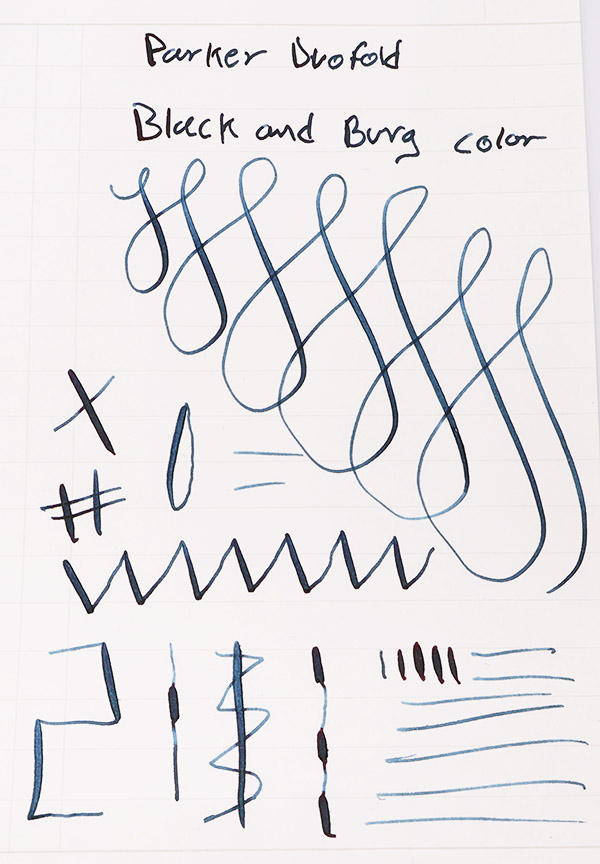 Parker Duofold
Black and Burg color